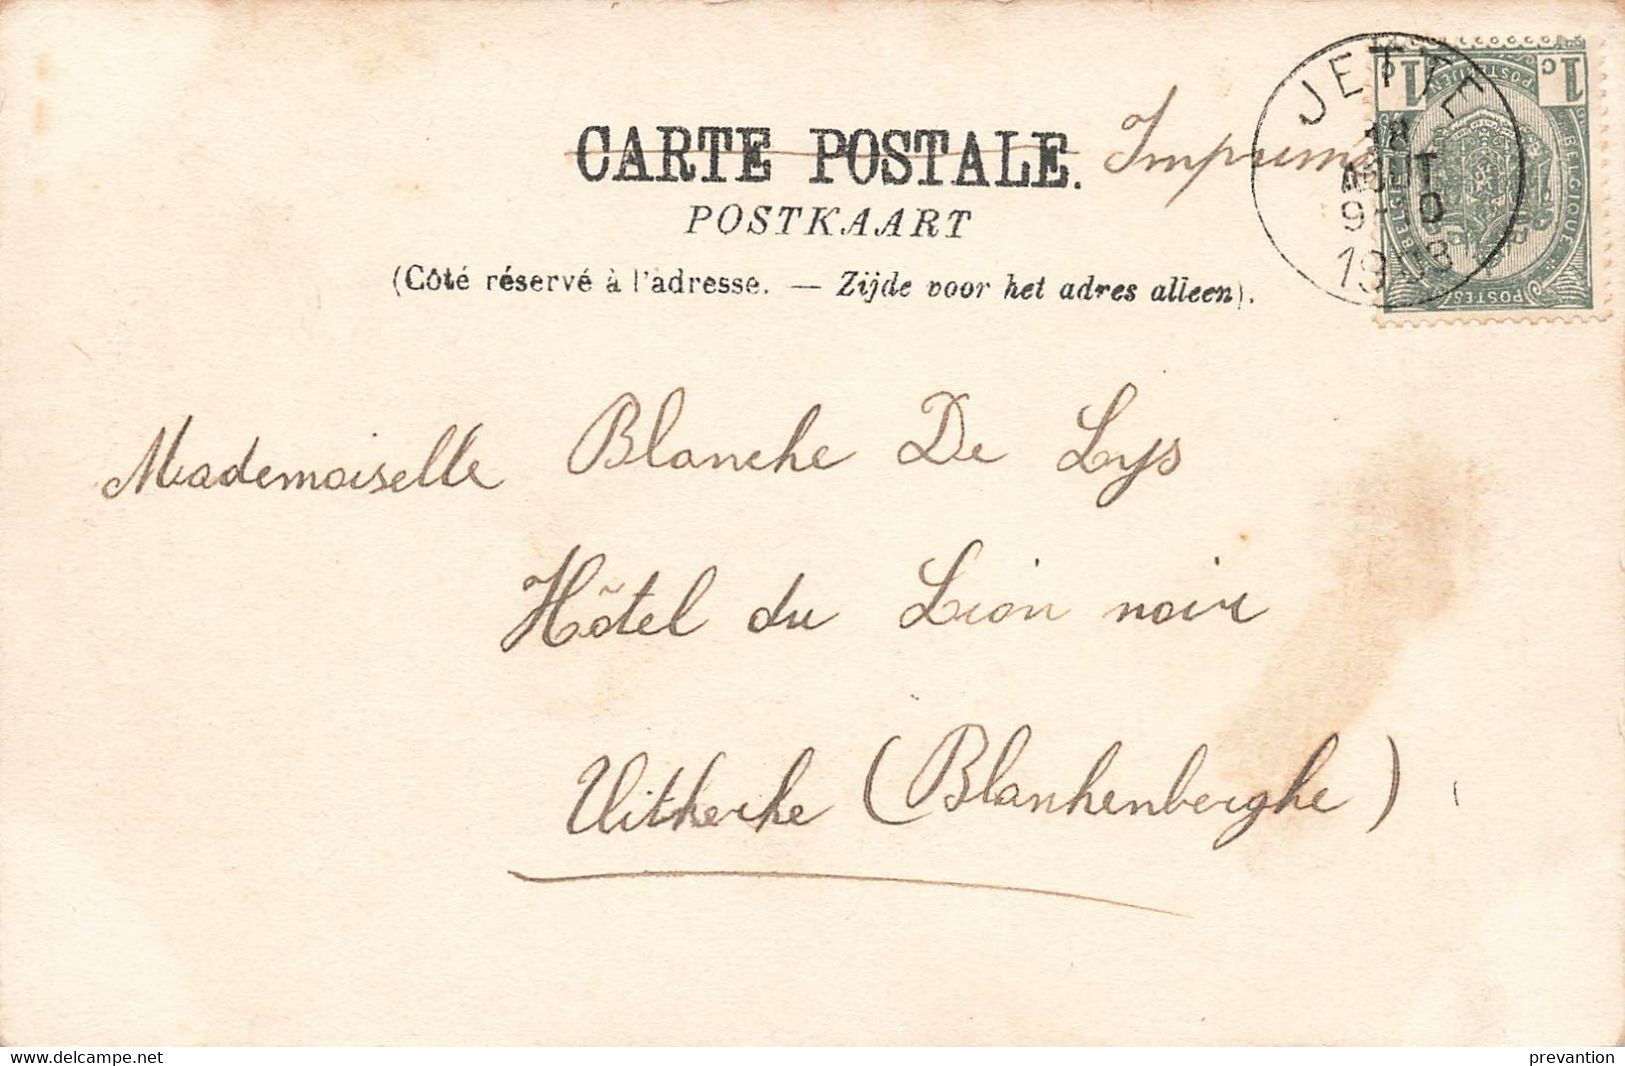 CARTE POSTALE. Imprimé
POSTKAART
(Côté réservé à l'adresse. — Zijde voor het adres alleen).
JETTE
18
AOUT
9-10
1903
1c 1c
BELGIQUE
POSTES
Mademoiselle Blanche De Lys
Hôtel du Lion noir
Uitkerke (Blankenberghe)
delcampe.net
prevantion